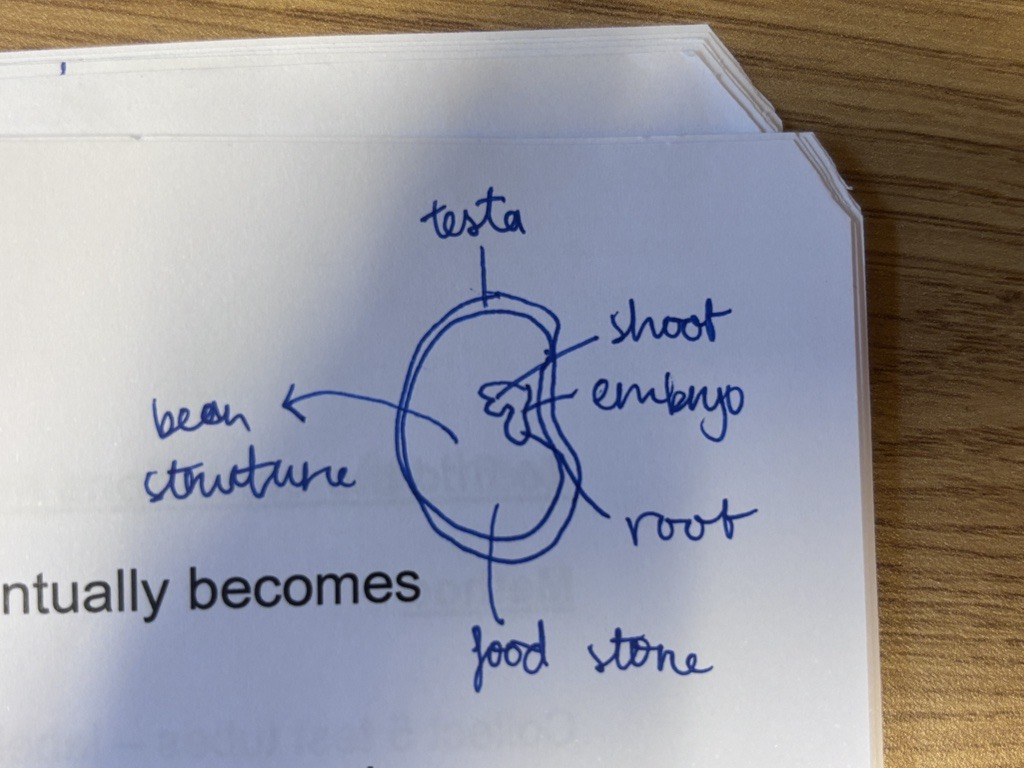 testa
shoot
bean
structure
embryo
root
ntually becomes
food store